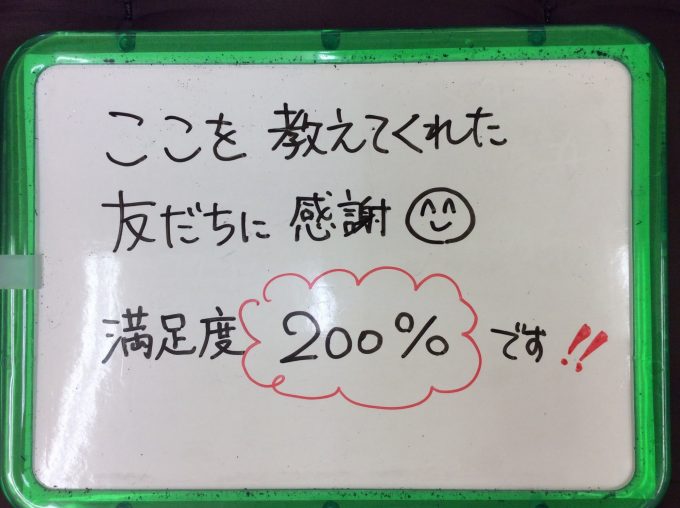 ここを 教えてくれた
友だちに 感謝
満足度 200% です!!